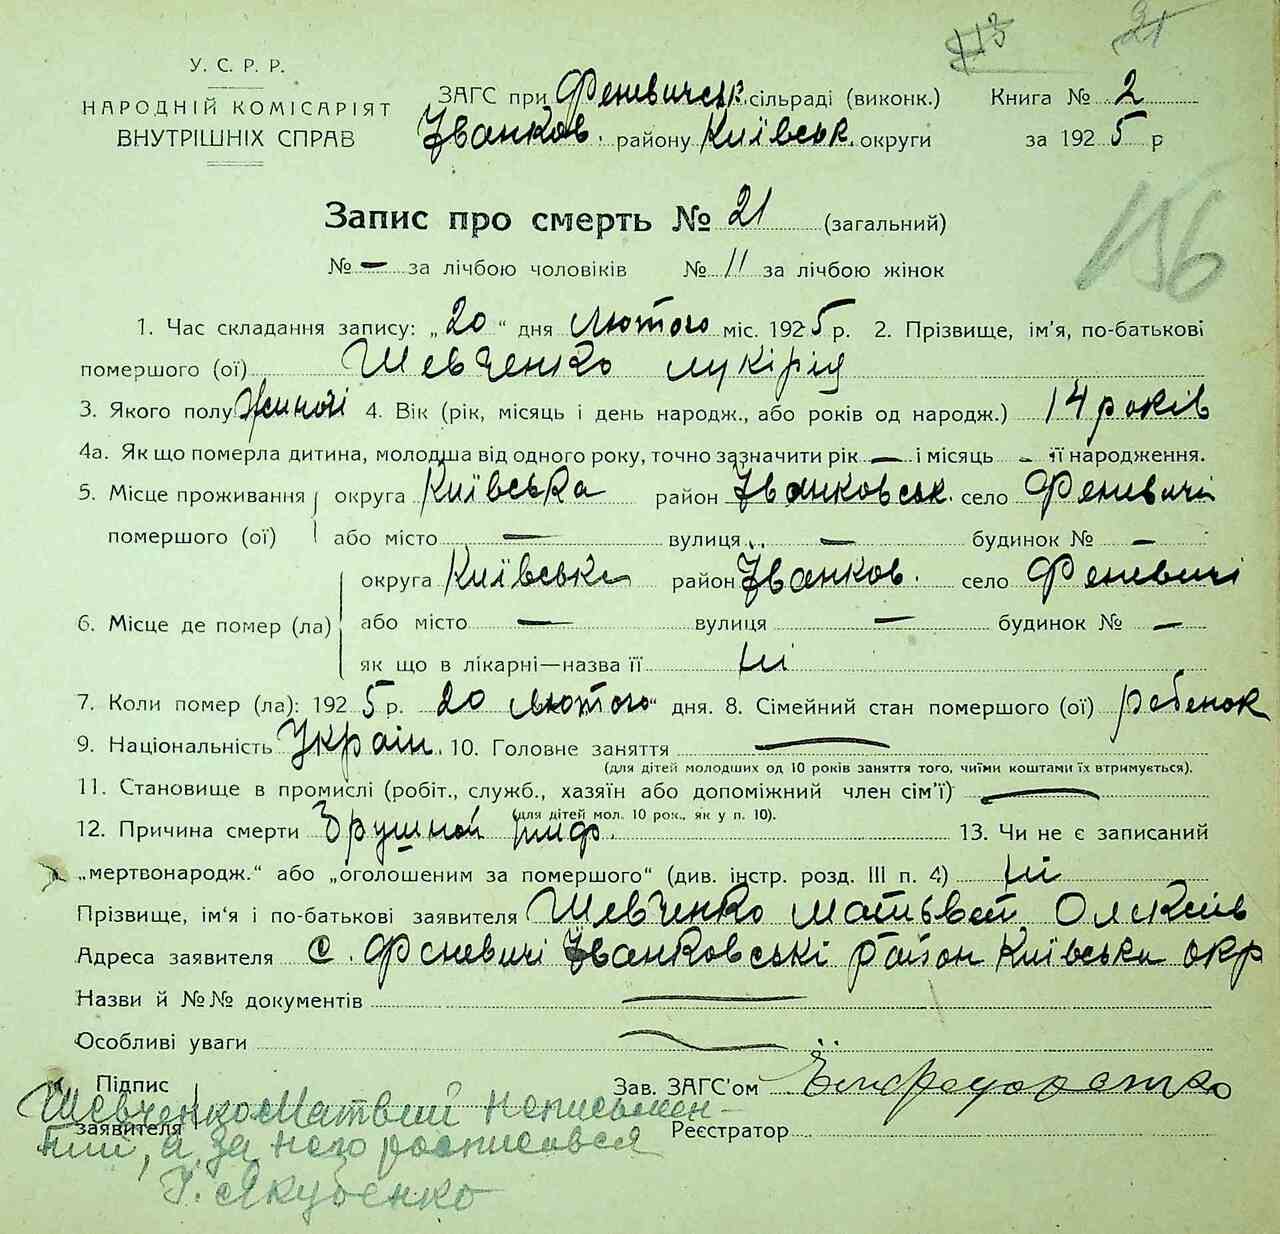 113 21
У. С. Р. Р.
НАРОДНІЙ КОМІСАРІЯТ
ВНУТРІШНІХ СПРАВ
ЗАГС при Феневичськ. сільраді (виконк.) Книга № 2
Іванков. району Київськ. округи за 1925 р
Запис про смерть № 21 (загальний)
156
№ — за лічбою чоловіків № 11 за лічбою жінок
1. Час складання запису: „20“ дня Лютого міс. 1925 р. 2. Прізвище, ім’я, по-батькові
помершого (ої) Шевченко Лукірія
3. Якого полу Жиночі 4. Вік (рік, місяць і день народж., або років од народж.) 14 років
4а. Як що померла дитина, молодша від одного року, точно зазначити рік — і місяць - її народження.
5. Місце проживання округа Київська район Іванковськ. село Феневичі
помершого (ої) або місто — вулиця — будинок № —
округа Київська район Іванков. село Феневичі
6. Місце де помер (ла) або місто — вулиця — будинок № —
як що в лікарні—назва її ні
7. Коли помер (ла): 1925 р. 20 Лютого“ дня. 8. Сімейний стан помершого (ої) ребенок
9. Національність Україн. 10. Головне заняття —
(для дітей молодших од 10 років заняття того, чиїми коштами їх втримується).
11. Становище в промислі (робіт., служб., хазяїн або допоміжний член сім’ї) —
(для дітей мол. 10 рок., як у п. 10).
12. Причина смерти брушной тиф. 13. Чи не є записаний
„мертвонародж.“ або „оголошеним за помершого“ (див. інстр. розд. III п. 4) ні
Прізвище, ім‘я і по-батькові заявителя Шевченко Матьвей Олексіїв
Адреса заявителя с. Феневичі Іванковські район Київська окр
Назви й №№ документів —
Особливі уваги —
Підпис Зав. ЗАГС’ом
Шевченко Матвий неписьмен-
заявителя Реєстратор
ний, а за него росписався
Якубенко